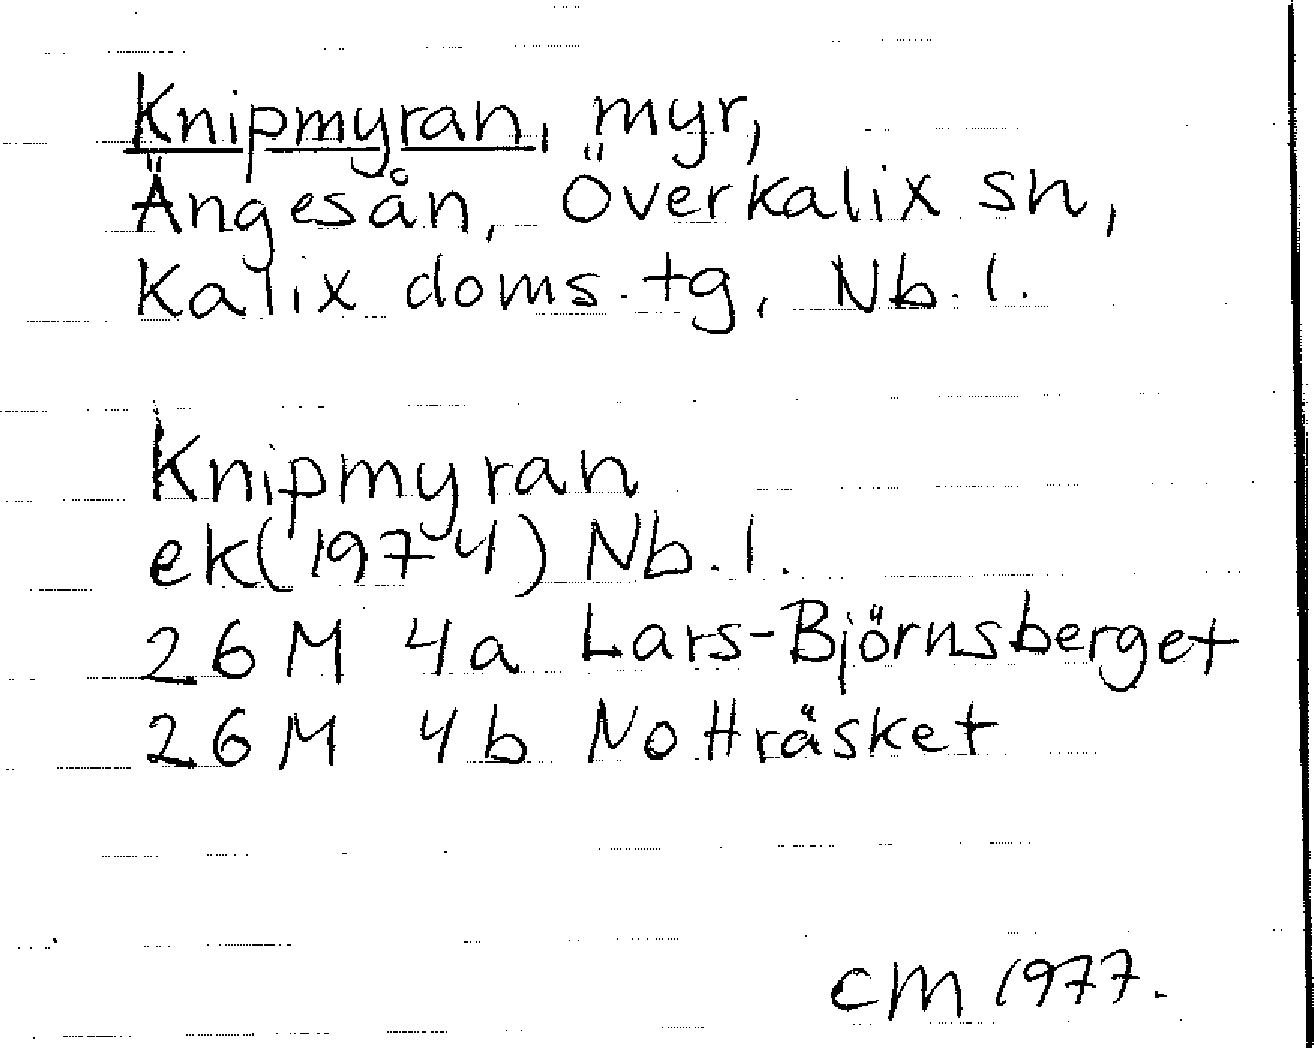 Knipmyran, myr,
Ängesån, Överkalix sn,
Kalix doms. tg, Nb. l.
Knipmyran
ek(1974) Nb. l.
26 M 4a Lars-Björnsberget
26 M 4b Notträsket
CM 1977.